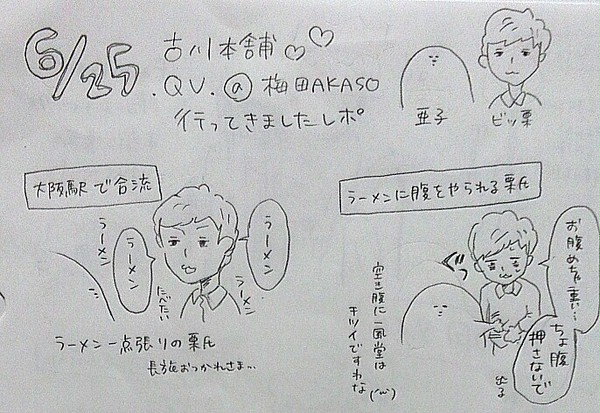 6/25 古川本舗♡♡
.QV.@梅田AKASO
行ってきましたレポ
亜子
ビッ栗
大阪駅で合流
ラーメン
ラーメン
ラーメン
ラーメン
たべたい
ラーメン一点張りの栗氏
長旅おつかれさま…
ラーメンに腹をやられる栗氏
お腹めちゃ重い…
ちょ腹押さないで
ぐっ
空き腹に一風堂は
キツイですわな
('ω')